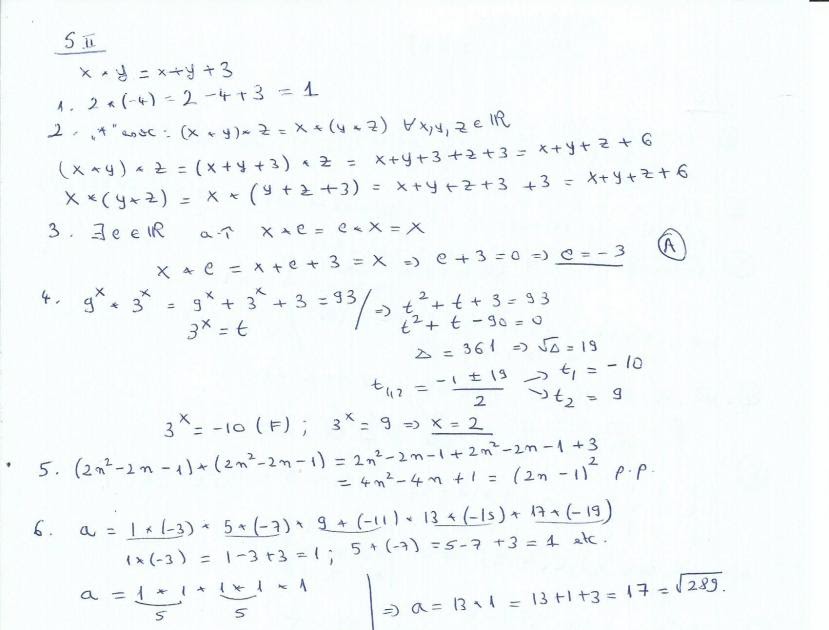 S II
x * y = x+y+3
1. 2 * (-4) = 2 -4 +3 = 1
2. „*" asoc : (x * y) * z = x * (y * z) ∀x,y,z ∈ ℝ
(x * y) * z = (x+y+3) * z = x+y+3+z+3 = x+y+z+6
x * (y * z) = x * (y+z+3) = x+y+z+3 +3 = x+y+z+6
3. ∃e ∈ ℝ a.î x * e = e * x = x
x * e = x+e+3 = x => e+3=0 => e = -3 (A)
4. 9^x * 3^x = 9^x + 3^x + 3 = 93 / => t² + t + 3 = 93
3^x = t t² + t - 90 = 0
Δ = 361 => √Δ = 19
t₁,₂ = (-1 ± 19)/2 → t₁ = -10 → t₂ = 9
3^x = -10 (F) ; 3^x = 9 => x = 2
5. (2n²-2n-1) * (2n²-2n-1) = 2n²-2n-1+2n²-2n-1+3
= 4n²-4n+1 = (2n-1)² p.p.
6. a = 1 * (-3) * 5 * (-7) * 9 * (-11) * 13 * (-15) * 17 * (-19)
1 * (-3) = 1-3+3 = 1 ; 5 * (-7) = 5-7+3 = 1 etc.
a = 1 * 1 * 1 * 1 * 1 => a = 13 * 1 = 13+1+3 = 17 = √289.
5 5